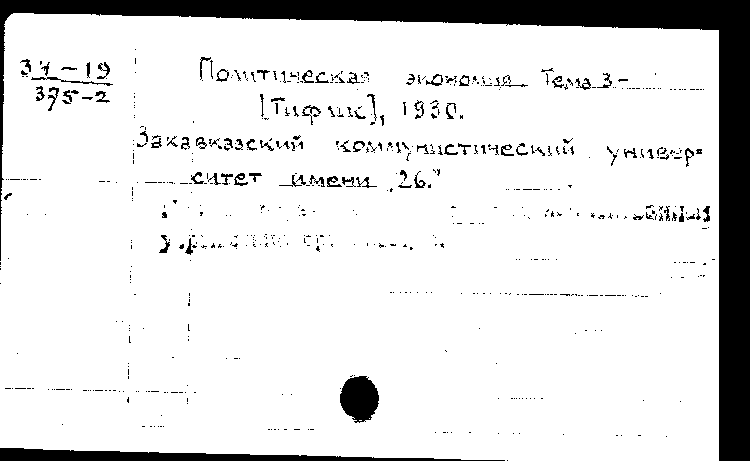 37-19
375-2
Политическая экономия. Тема 3-
[Тифлис], 1930.
Закавказский коммунистический универ=
ситет имени „26."